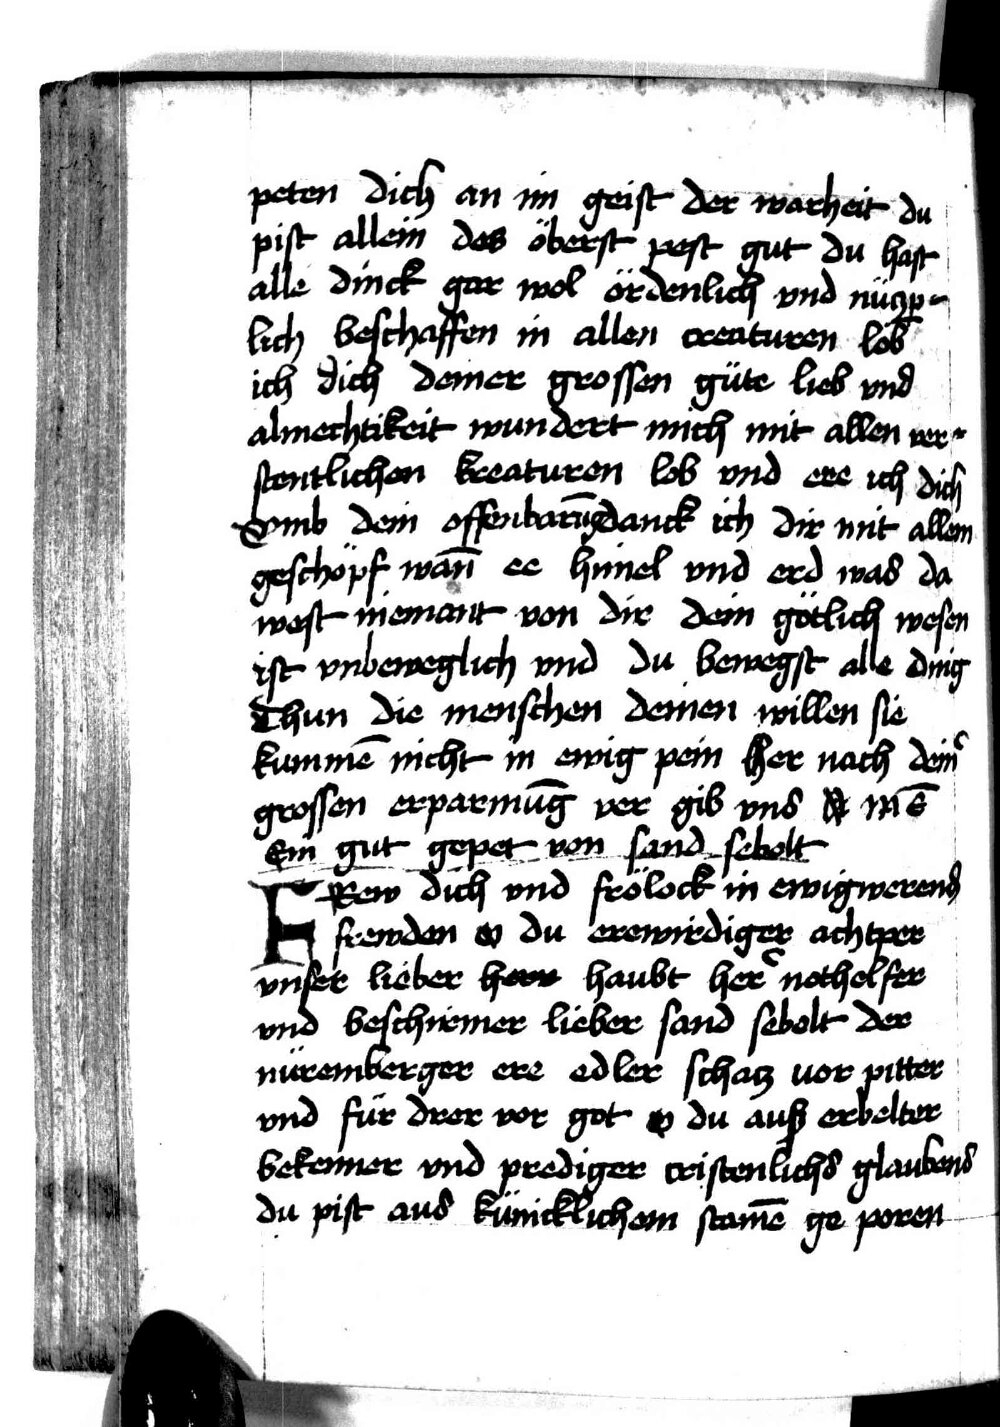 peten dich an im geist der warheit du
pist allein das öberst pest gut du hast
alle dinck gar wol ördenlich vnd nüczp-
lich beschaffen in allen creaturen lob
ich dich deiner grossen güte lieb vnd
almechtikeit wundert mich mit allen ver-
stentlichen kreaturen lob vnd ere ich dich
vmb dein offenbarūg danck ich dir mit allem
geschöpf wān̄ ee himel vnd erd was da
west niemant von dir dein götlich wesen
ist vnbeweglich vnd du bewegst alle ding
Thun die menschen deinen willen sie
kummē nicht in ewig pein Her nach dein̾
grossen erparmūg ver gib vns
Ein gut gepet von sand sebolt
FRew dich vnd frölock in ewigwerend
frewden o du erewirdiger achtper
vnser lieber haubt her̾ nothelfer
vnd beschirmer lieber sand sebolt der
nüremberger ere edler schacz vor pitter
vnd für drer vor got o du auß erbelter
bekenner vnd prediger cristenlichs glaubens
du pist aus künicklichem stamē ge poren